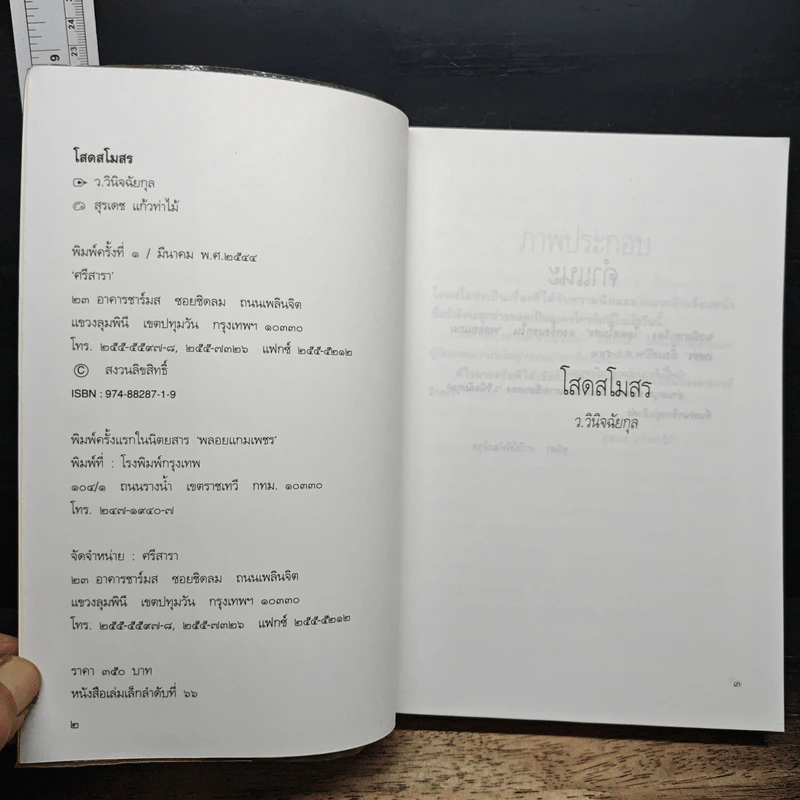 โสดสโมสร
ว.วินิจฉัยกุล
สุรเดช แก้วท่าไม้
พิมพ์ครั้งที่ ๑ / มีนาคม พ.ศ.๒๕๔๔
'ศรีสารา'
๒๓ อาคารชาร์มส ซอยชิดลม ถนนเพลินจิต
แขวงลุมพินี เขตปทุมวัน กรุงเทพฯ ๑๐๓๓๐
โทร. ๒๕๕-๕๕๙๗-๘, ๒๕๕-๗๓๒๖ แฟกซ์ ๒๕๕-๕๒๑๒
© สงวนลิขสิทธิ์
ISBN : 974-88287-1-9
พิมพ์ครั้งแรกในนิตยสาร 'พลอยแกมเพชร'
พิมพ์ที่ : โรงพิมพ์กรุงเทพ
๑๐๔/๑ ถนนรางน้ำ เขตราชเทวี กทม. ๑๐๓๓๐
โทร. ๒๔๗-๑๙๔๐-๗
จัดจำหน่าย : ศรีสารา
๒๓ อาคารชาร์มส ซอยชิดลม ถนนเพลินจิต
แขวงลุมพินี เขตปทุมวัน กรุงเทพฯ ๑๐๓๓๐
โทร. ๒๕๕-๕๕๙๗-๘, ๒๕๕-๗๓๒๖ แฟกซ์ ๒๕๕-๕๒๑๒
ราคา ๓๕๐ บาท
หนังสือเล่มเล็กลำดับที่ ๖๖
๒
โสดสโมสร
ว.วินิจฉัยกุล
๓